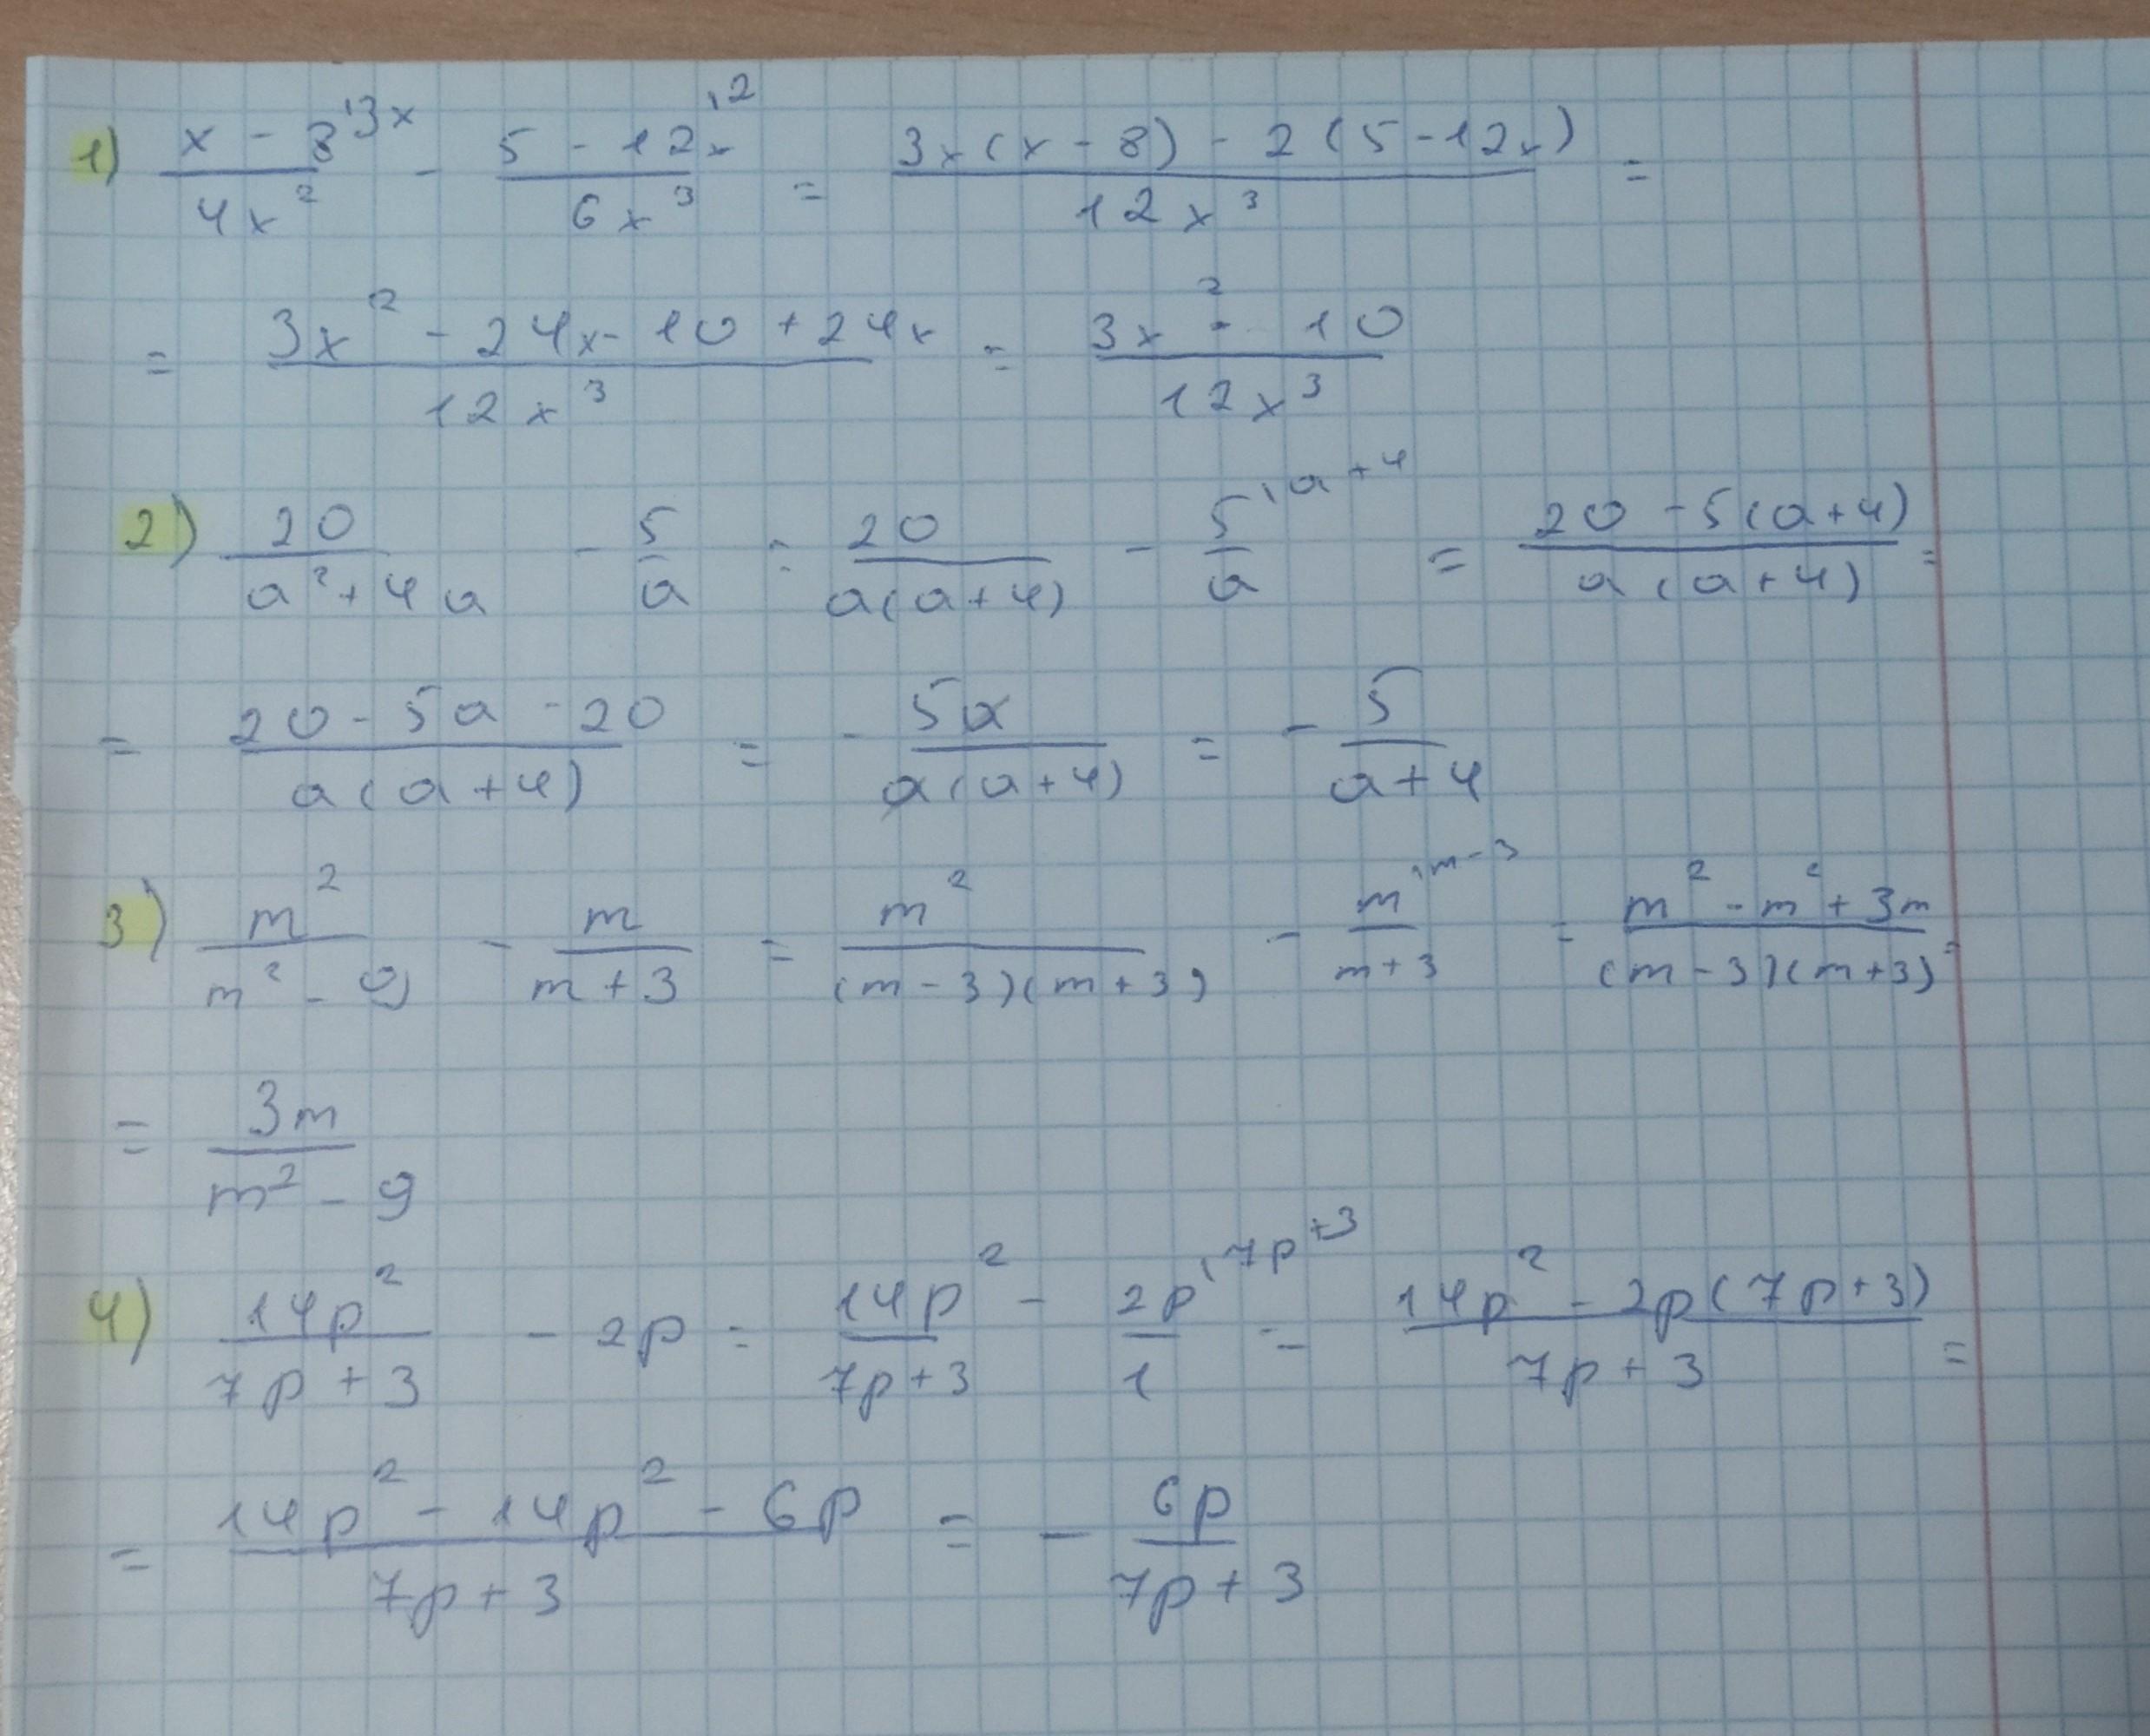 1) (x - 8)^{\3x} / 4x² - (5 - 12x)^{\2} / 6x³ = (3x(x - 8) - 2(5 - 12x)) / 12x³ =
= (3x² - 24x - 10 + 24x) / 12x³ = (3x² - 10) / 12x³
2) 20 / (a² + 4a) - 5 / a = 20 / (a(a + 4)) - 5^{\a + 4} / a = (20 - 5(a + 4)) / (a(a + 4)) =
= (20 - 5a - 20) / (a(a + 4)) = - 5a / (a(a + 4)) = - 5 / (a + 4)
3) m² / (m² - 9) - m / (m + 3) = m² / ((m - 3)(m + 3)) - m^{\m - 3} / (m + 3) = (m² - m² + 3m) / ((m - 3)(m + 3)) =
= 3m / (m² - 9)
4) 14p² / (7p + 3) - 2p = 14p² / (7p + 3) - 2p^{\7p + 3} / 1 = (14p² - 2p(7p + 3)) / (7p + 3) =
= (14p² - 14p² - 6p) / (7p + 3) = - 6p / (7p + 3)